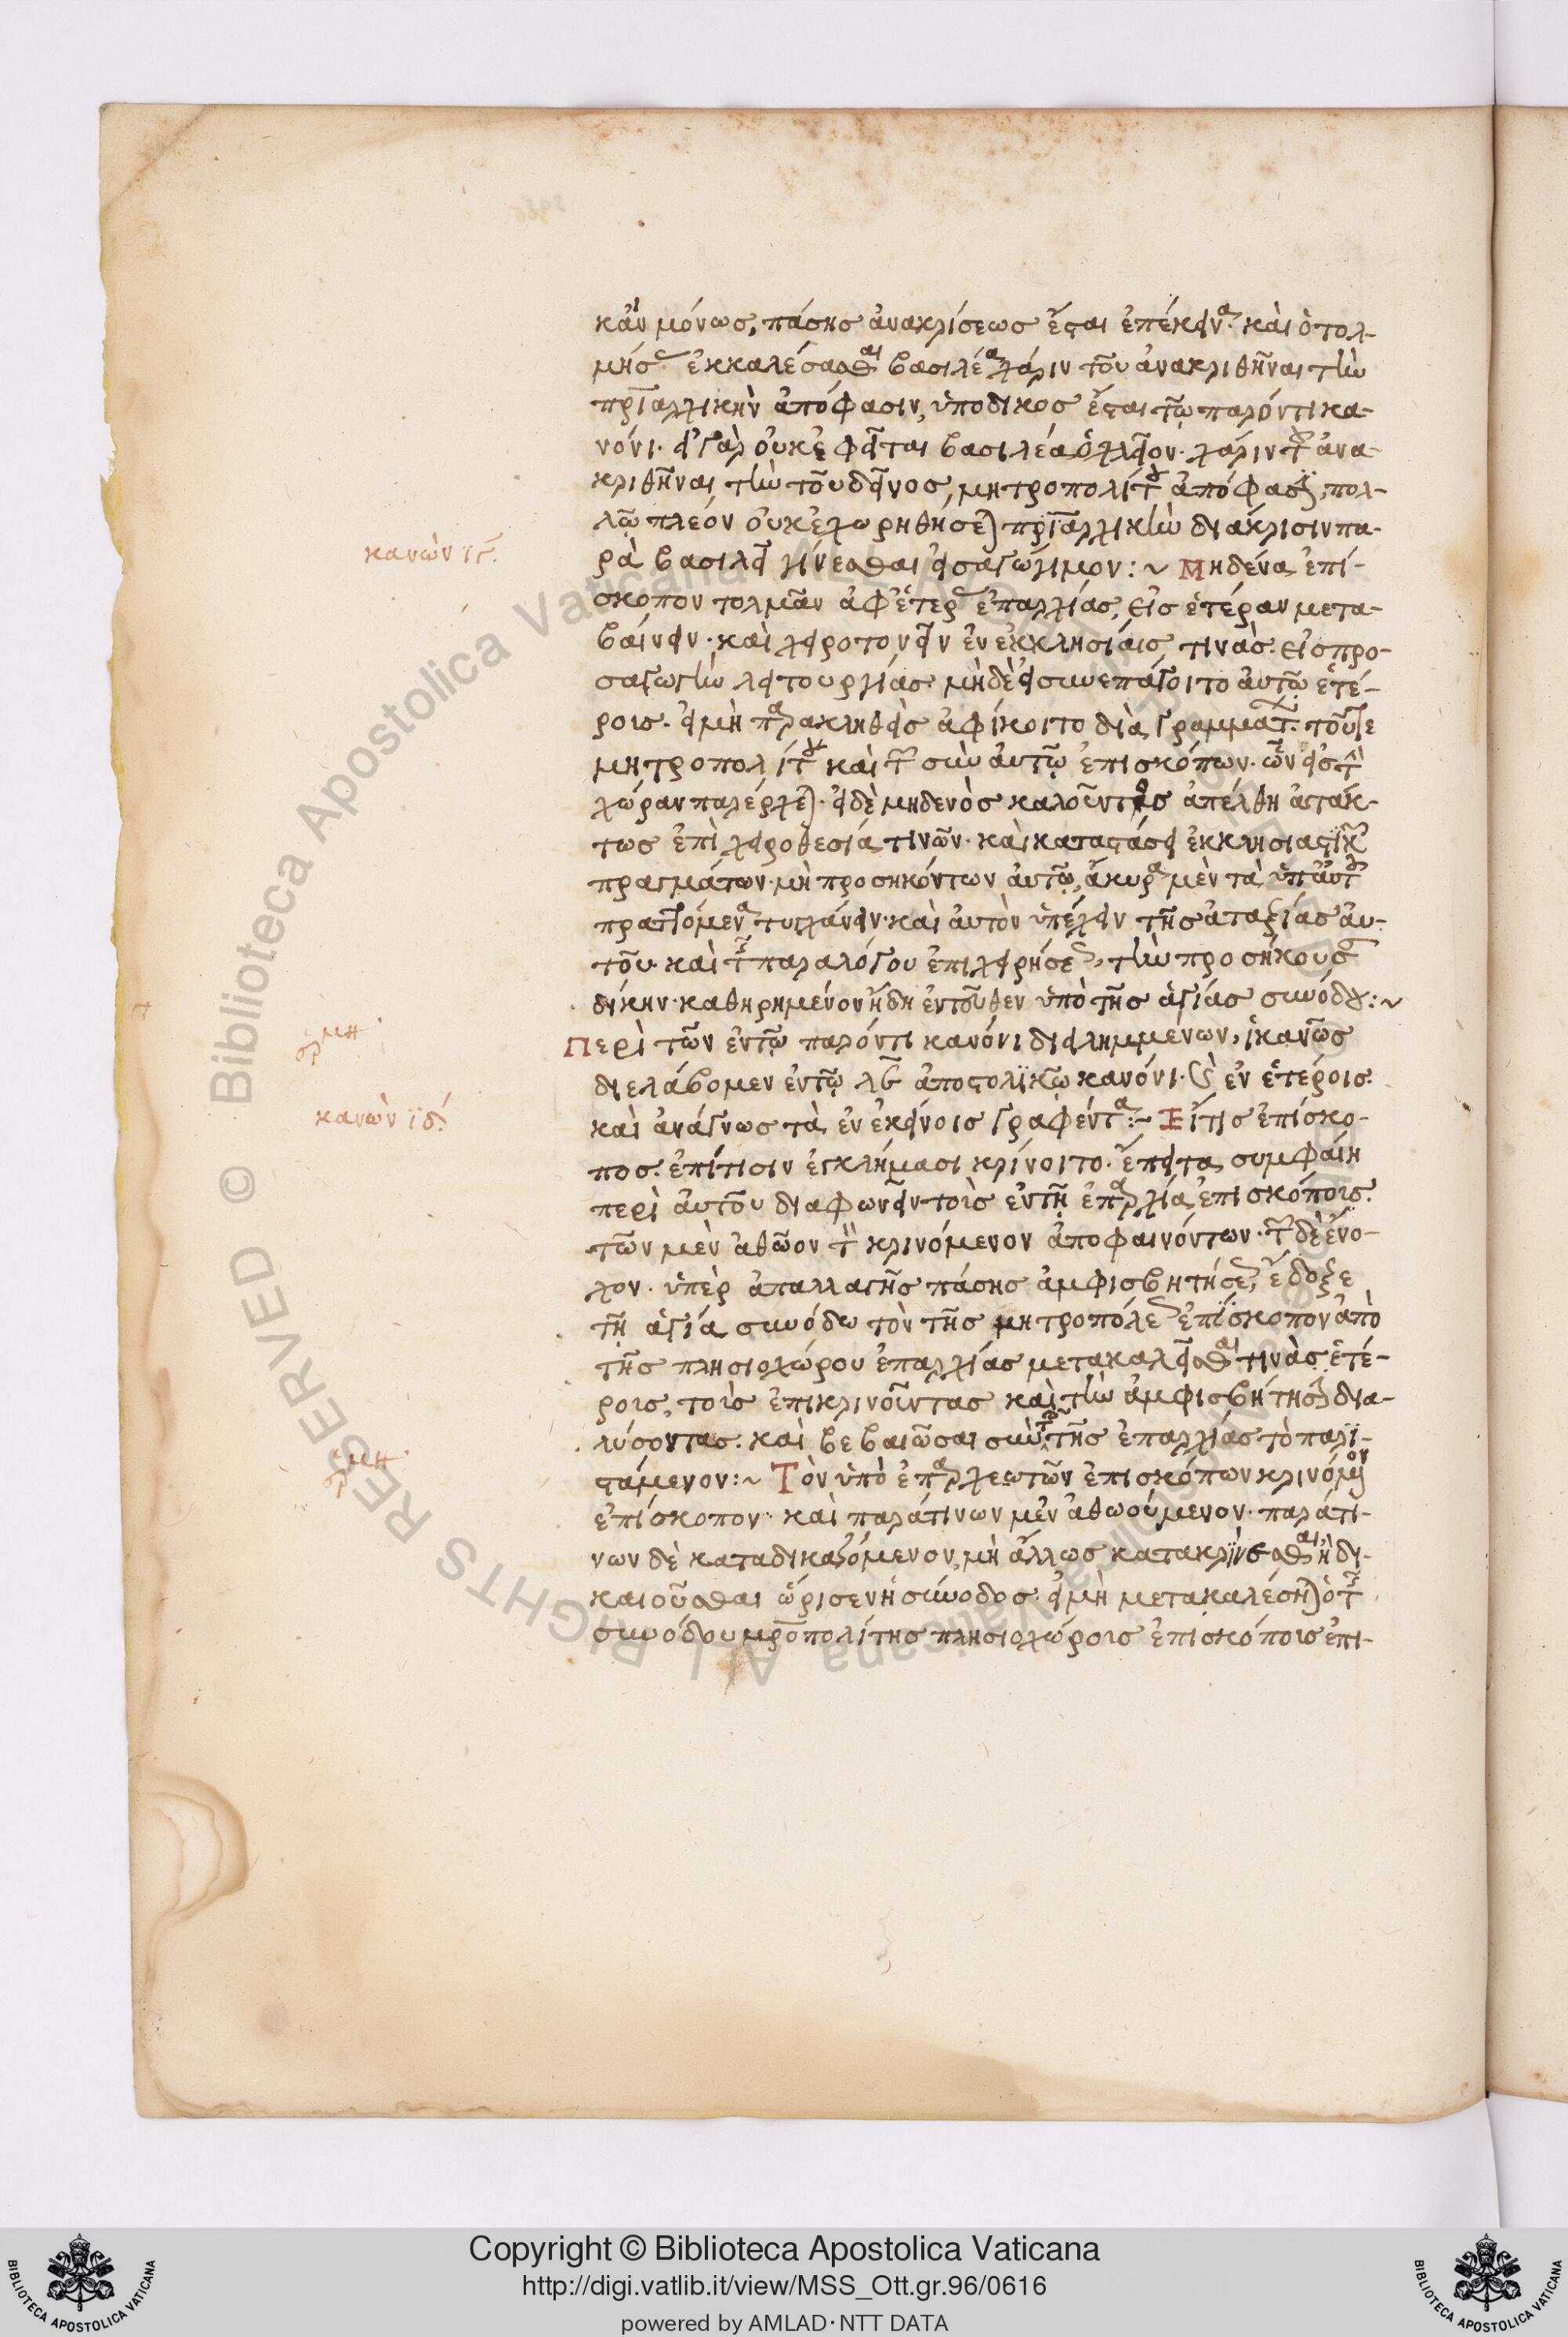 κἂν μόνως, πάσης ἀνακρίσεως ἔσται ἐπέκεινα· καὶ ὁ τολ-
μήσας ἐκκαλέσασθαι βασιλέα χάριν τοῦ ἀνακριθῆναι τὴν
πριαρχικὴν ἀπόφασιν, ὑπόδικος ἔσται τῷ παρόντι κα-
νόνι· εἰ γὰρ οὐκ ἐφεῖται βασιλέα ὀχλεῖον· χάριν τοῦ ἀνα-
κριθῆναι τὴν τοῦ δεῖνος μητροπολίτου ἀπόφασιν, πολ-
λῷ πλέον οὐκ ἐχωρηθήσεται πριαρχικὴν διάκρισιν πα-
ρὰ βασιλεῖ γίνεσθαι εἰσαγώγιμον:~ Μηδένα ἐπί-
κανὼν ιγ.
σκοπον τολμᾶν ἀφ' ἑτέρας ἐπαρχίας, εἰς ἑτέραν μετα-
βαίνειν· καὶ χειροτονεῖν ἐν ἐκκλησίαις τινὰς εἰς προ-
σαγωγὴν λειτουργίας· μὴ δὲ εἰ συνεπάγοιτο αὐτῷ ἑτέ-
ροις· εἰ μὴ παρακληθεὶς ἀφίκοιτο διὰ γραμμάτων τοῦ γε
μητροπολίτου καὶ τῶν σὺν αὐτῷ ἐπισκόπων· ὧν εἰς τὴν
χώραν παρέρχεται· εἰ δὲ μηδενὸς καλοῦντος ἀπέλθη ἀτάκ-
τως ἐπὶ χειροθεσία τινῶν· καὶ καταστάσει ἐκκλησιαστικῶν
πραγμάτων μὴ προσηκόντων αὐτῷ, ἄκυρα μὲν τὰ ὑπ' αὐτοῦ
πραττόμενα τυγχάνειν· καὶ αὐτὸν ὑπέχειν τῆς ἀταξίας αὐ-
τοῦ· καὶ τῆς παραλόγου ἐπιχειρήσεως, τὴν προσήκουσαν
δίκην· καθηρημένον ἤδη ἐντεῦθεν ὑπὸ τῆς ἁγίας συνόδου:~
ἑρμη
Περὶ τῶν ἐν τῷ παρόντι κανόνι διειλημμένων, ἱκανῶς
διελάβομεν ἐν τῷ λε ἀποστολικῷ κανόνι· καὶ ἐν ἑτέροις·
καὶ ἀνάγνως τὰ ἐν ἐκείνοις γραφέντα:~ Εἴ τις ἐπίσκο-
κανὼν ιδ.
πος ἐπί τισιν ἐγκλήμασι κρίνοιτο· ἔπειτα συμφαίη
περὶ αὐτοῦ διαφωνεῖν τοὶς ἐν τῇ ἐπαρχία ἐπισκόποις·
τῶν μὲν ἀθῶον τὸν κρινόμενον ἀποφαινόντων· τῶν δὲ ἔνο-
χον· ὑπὲρ ἀπαλλαγῆς πάσης ἀμφισβητήσεως, ἔδοξε
τῇ ἁγία συνόδω τὸν τῆς μητροπόλεως ἐπίσκοπον ἀπὸ
τῆς πλησιοχώρου ἐπαρχίας μετακαλεῖσθαι τινὰς ἑτέ-
ροις, τοὶς ἐπικρινοῦντας καὶ τὴν ἀμφισβήτησιν δια-
λύσοντας· καὶ βεβαιῶσαι σὺν τοῖς τῆς ἐπαρχίας τὸ παρι-
στάμενον:~ Τὸν ὑπὸ ἐπαρχεωτῶν ἐπισκόπων κρινόμενον
ἑρμη
ἐπίσκοπον· καὶ παρά τινων μὲν ἀθωούμενον· παρά τι-
νων δὲ καταδικαζόμενον, μὴ ἄλλως κατακρίνεσθαι ἢ δι-
καιοῦσθαι ὥρισεν ἡ σύνοδος· εἰ μὴ μετακαλέσηται ὁ τῆς
συνόδου μροπολίτης πλησιοχώροις ἐπισκόποις ἐπι-
Copyright © Biblioteca Apostolica Vaticana
http://digi.vatlib.it/view/MSS_Ott.gr.96/0616
powered by AMLAD·NTT DATA